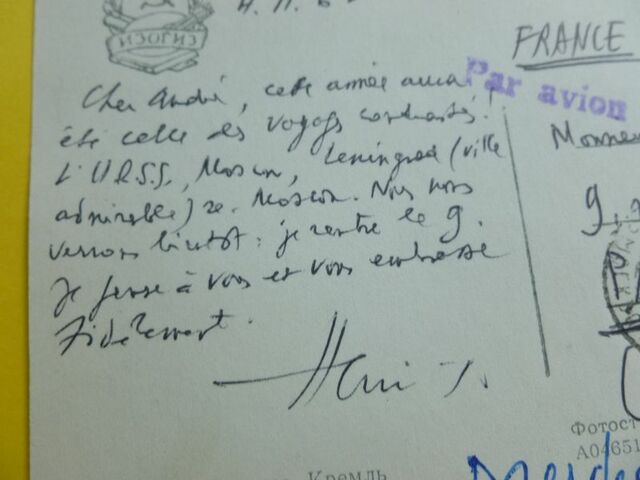 ИЗОГИЗ
FRANCE
Par avion
Cher André, cette année aura
été celle des voyages contrastés!
L'URSS, Moscou, Leningrad (ville
admirable) re-Moscou. Nous nous
verrons bientôt: je rentre le 9.
Je pense à vous et vous embrasse
fidèlement.
Henri
Monsieur
9
Фотост
А04651
Кремль